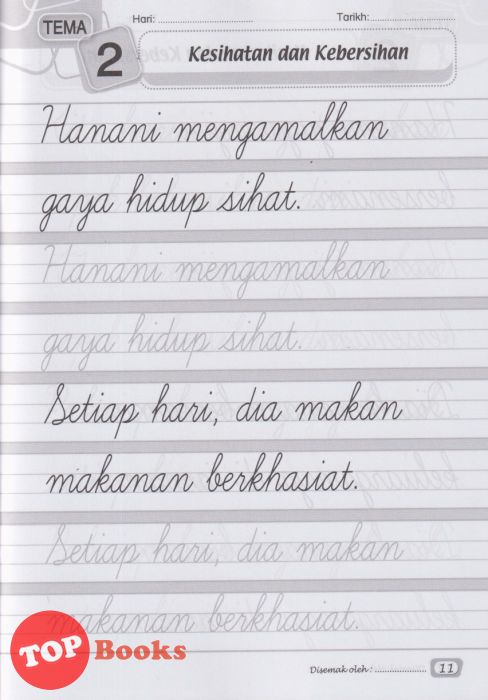 TEMA
2
Hari:
Tarikh:
Kesihatan dan Kebersihan
Hanani mengamalkan
gaya hidup sihat.
Hanani mengamalkan
gaya hidup sihat.
Setiap hari, dia makan
makanan berkhasiat.
Setiap hari, dia makan
makanan berkhasiat.
TOP Books
Disemak oleh :
11